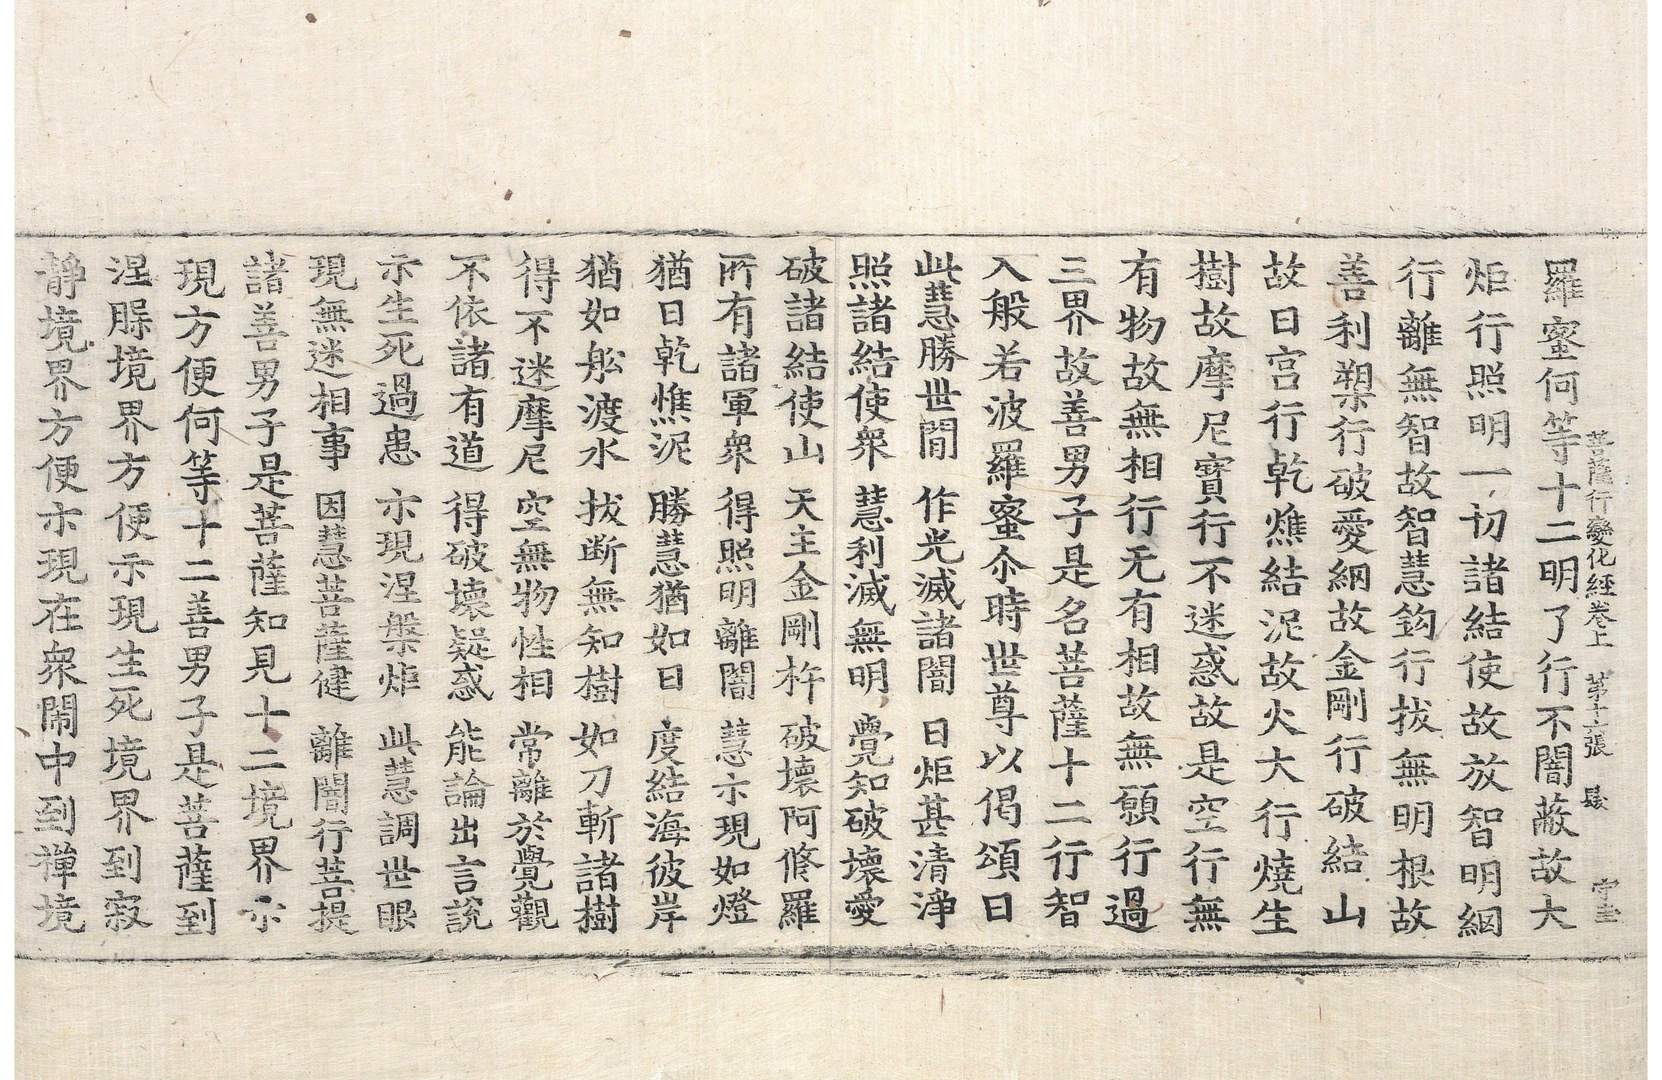 菩薩行變化經卷上 第十六張 㝵
羅蜜何等十二明了行不闇蔽故大
炬行照明一切諸結使故放智明網
行離無智故智慧鈎行拔無明根故
善利槊行破愛網故金剛行破結山
故日宮行乾燋結泥故火大行燒生
樹故摩尼寶行不迷惑故是空行無
有物故無相行无有相故無願行過
三界故善男子是名菩薩十二行智
入般若波羅蜜尒時世尊以偈頌曰
此慧勝世間 作光滅諸闇 日炬甚清淨
照諸結使衆 慧利滅無明 覺知破壞愛
破諸結使山 天主金剛杵 破壞阿脩羅
所有諸軍衆 得照明離闇 慧示現如燈
猶日乾燋泥 勝慧猶如日 度結海彼岸
猶如舩渡水 拔断無知樹 如刀斬諸樹
得不迷摩尼 空無物性相 常離於覺觀
不依諸有道 得破壞疑惑 能論出言說
示生死過患 亦現涅槃炬 此慧調世眼
現無迷相事 因慧菩薩健 離闇行菩提
諸善男子是菩薩知見十二境界示
現方便何等十二善男子是菩薩到
涅槃境界方便示現生死境界到寂
靜境界方便示現在衆閙中到禪境